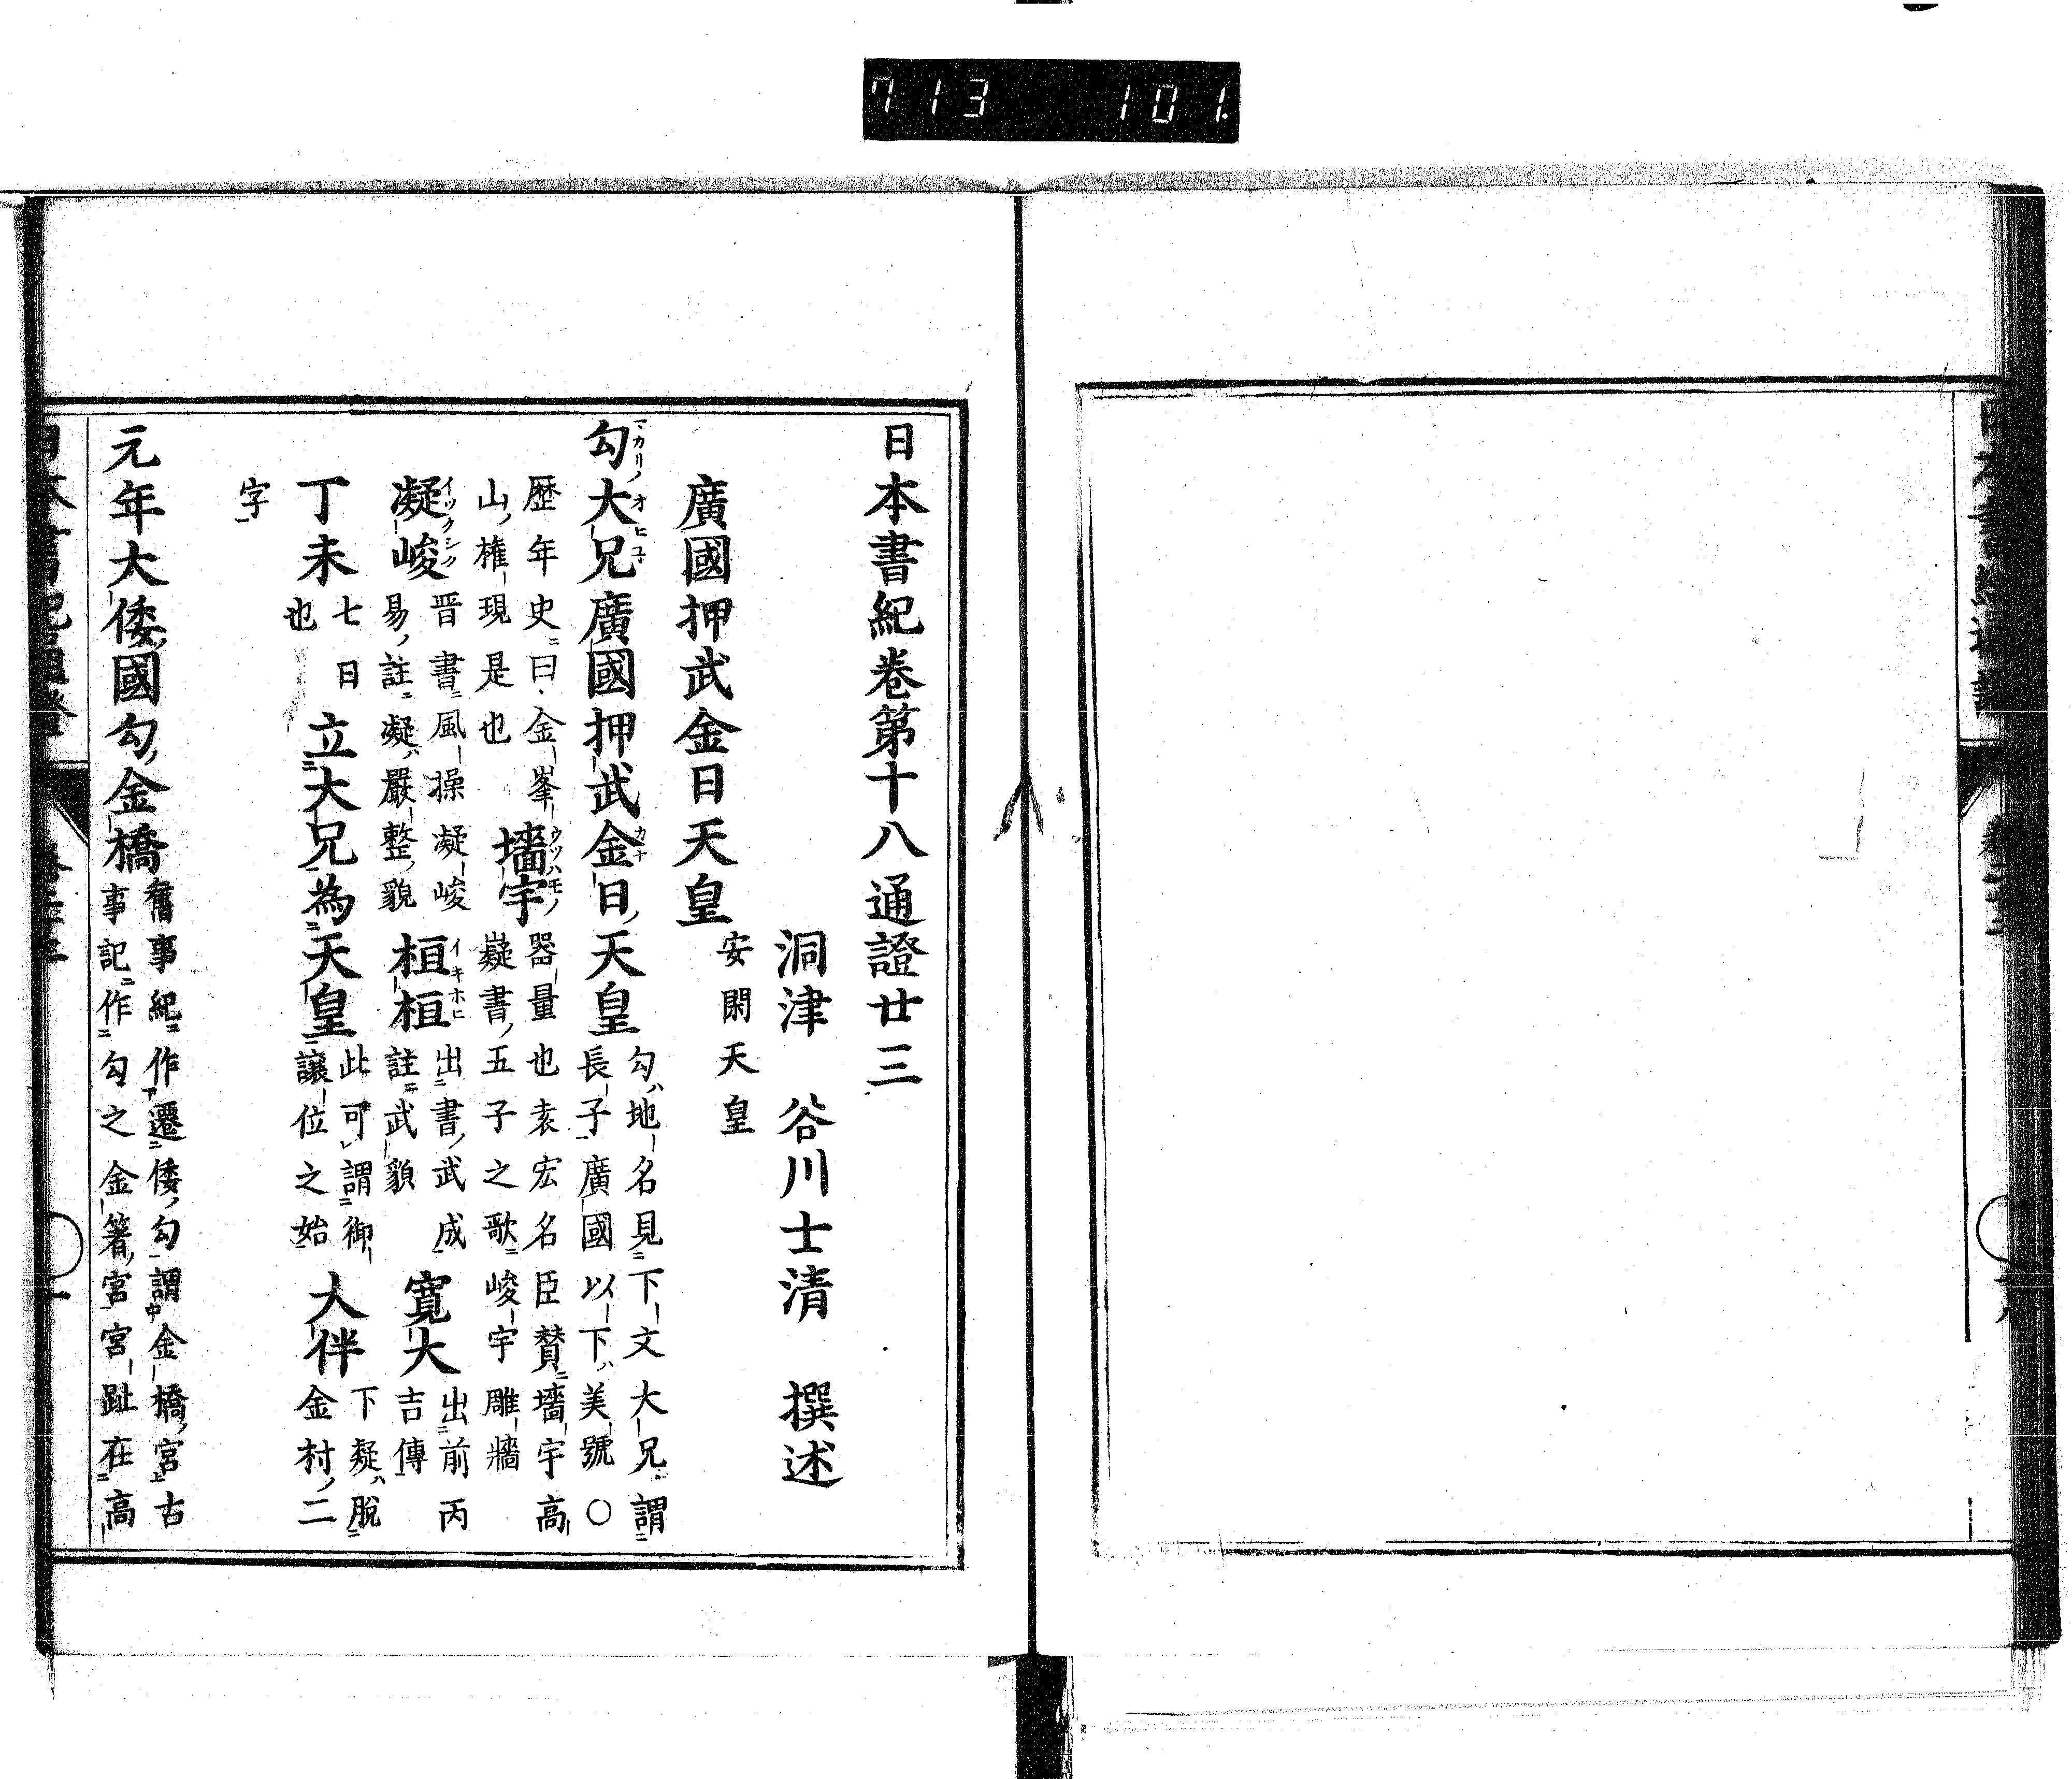 713 101.
日本書紀卷第十八通證廿三
洞津 谷川士清 撰述
廣國押武金日天皇 安閑天皇
勾大兄廣國押武金日天皇 勾ハ地名見下文大兄謂長子廣國以下ハ美號〇
歴年史曰金峯山權現是也 墻宇 器量也袁宏名臣賛墻宇高嶷書五子之歌峻宇雕牆
凝峻 晋書風操凝峻易註凝嚴整貌 桓桓 出書武成註武貌 寛大 出前丙吉傳
丁未 七日也 立大兄為天皇 此可謂御讓位之始 大伴 下疑脱金村二
字
元年大倭國勾金橋 舊事紀作遷倭勾謂金橋宮古事記作勾之金箸宮宮趾在高